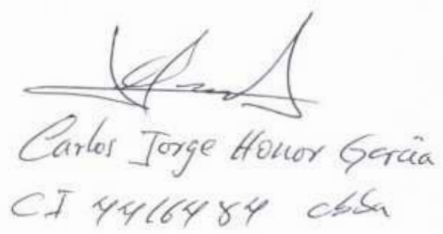 Carlos Jorge Honor García
CI 4416484 cbba